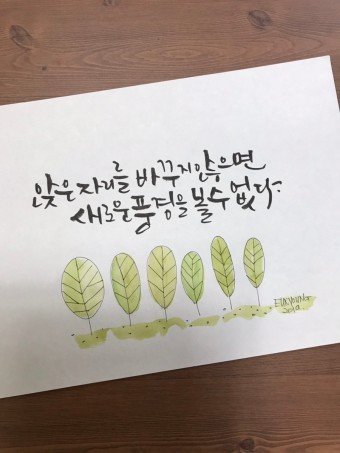 앉은 자리를 바꾸지 않으면
새로운 풍경을 볼 수 없다.
EUNYOUNG
2019